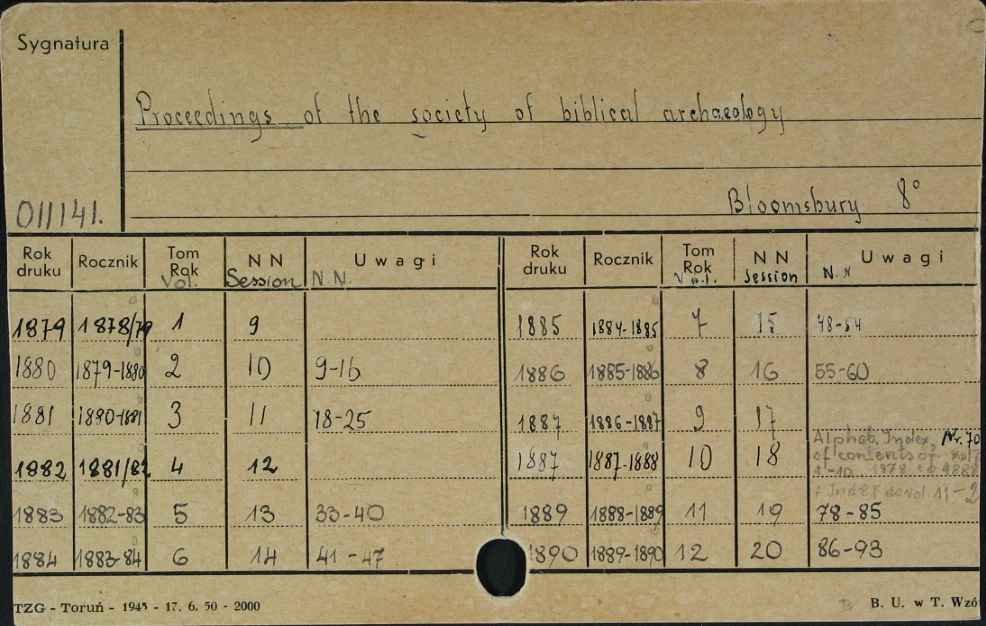 Sygnatura
Proceedings of the society of biblical archaeology
Bloomsbury 8°
011141.
Rok druku Rocznik Tom Rok Vol. N N Session Uwagi N.N.
1879 1878/79 1 9
1880 1879-1880 2 10 9-16
1881 1880-1881 3 11 18-25
1882 1881/82 4 12
1883 1882-83 5 13 33-40
1884 1883-84 6 14 41-47
Rok druku Rocznik Tom Rok Vol. N N Session Uwagi N.N
1885 1884-1885 7 15 48-54
1886 1885-1886 8 16 55-60
1887 1886-1887 9 17
1887 1887-1888 10 18 Alphab. Index, Nr. 70
of contents of vol
1-10 1878 to 1888
+ Index do vol. 11-2
1889 1888-1889 11 19 78-85
1890 1889-1890 12 20 86-93
TZG - Toruń - 1945 - 17. 6. 50 - 2000
B. U. w T. Wzó